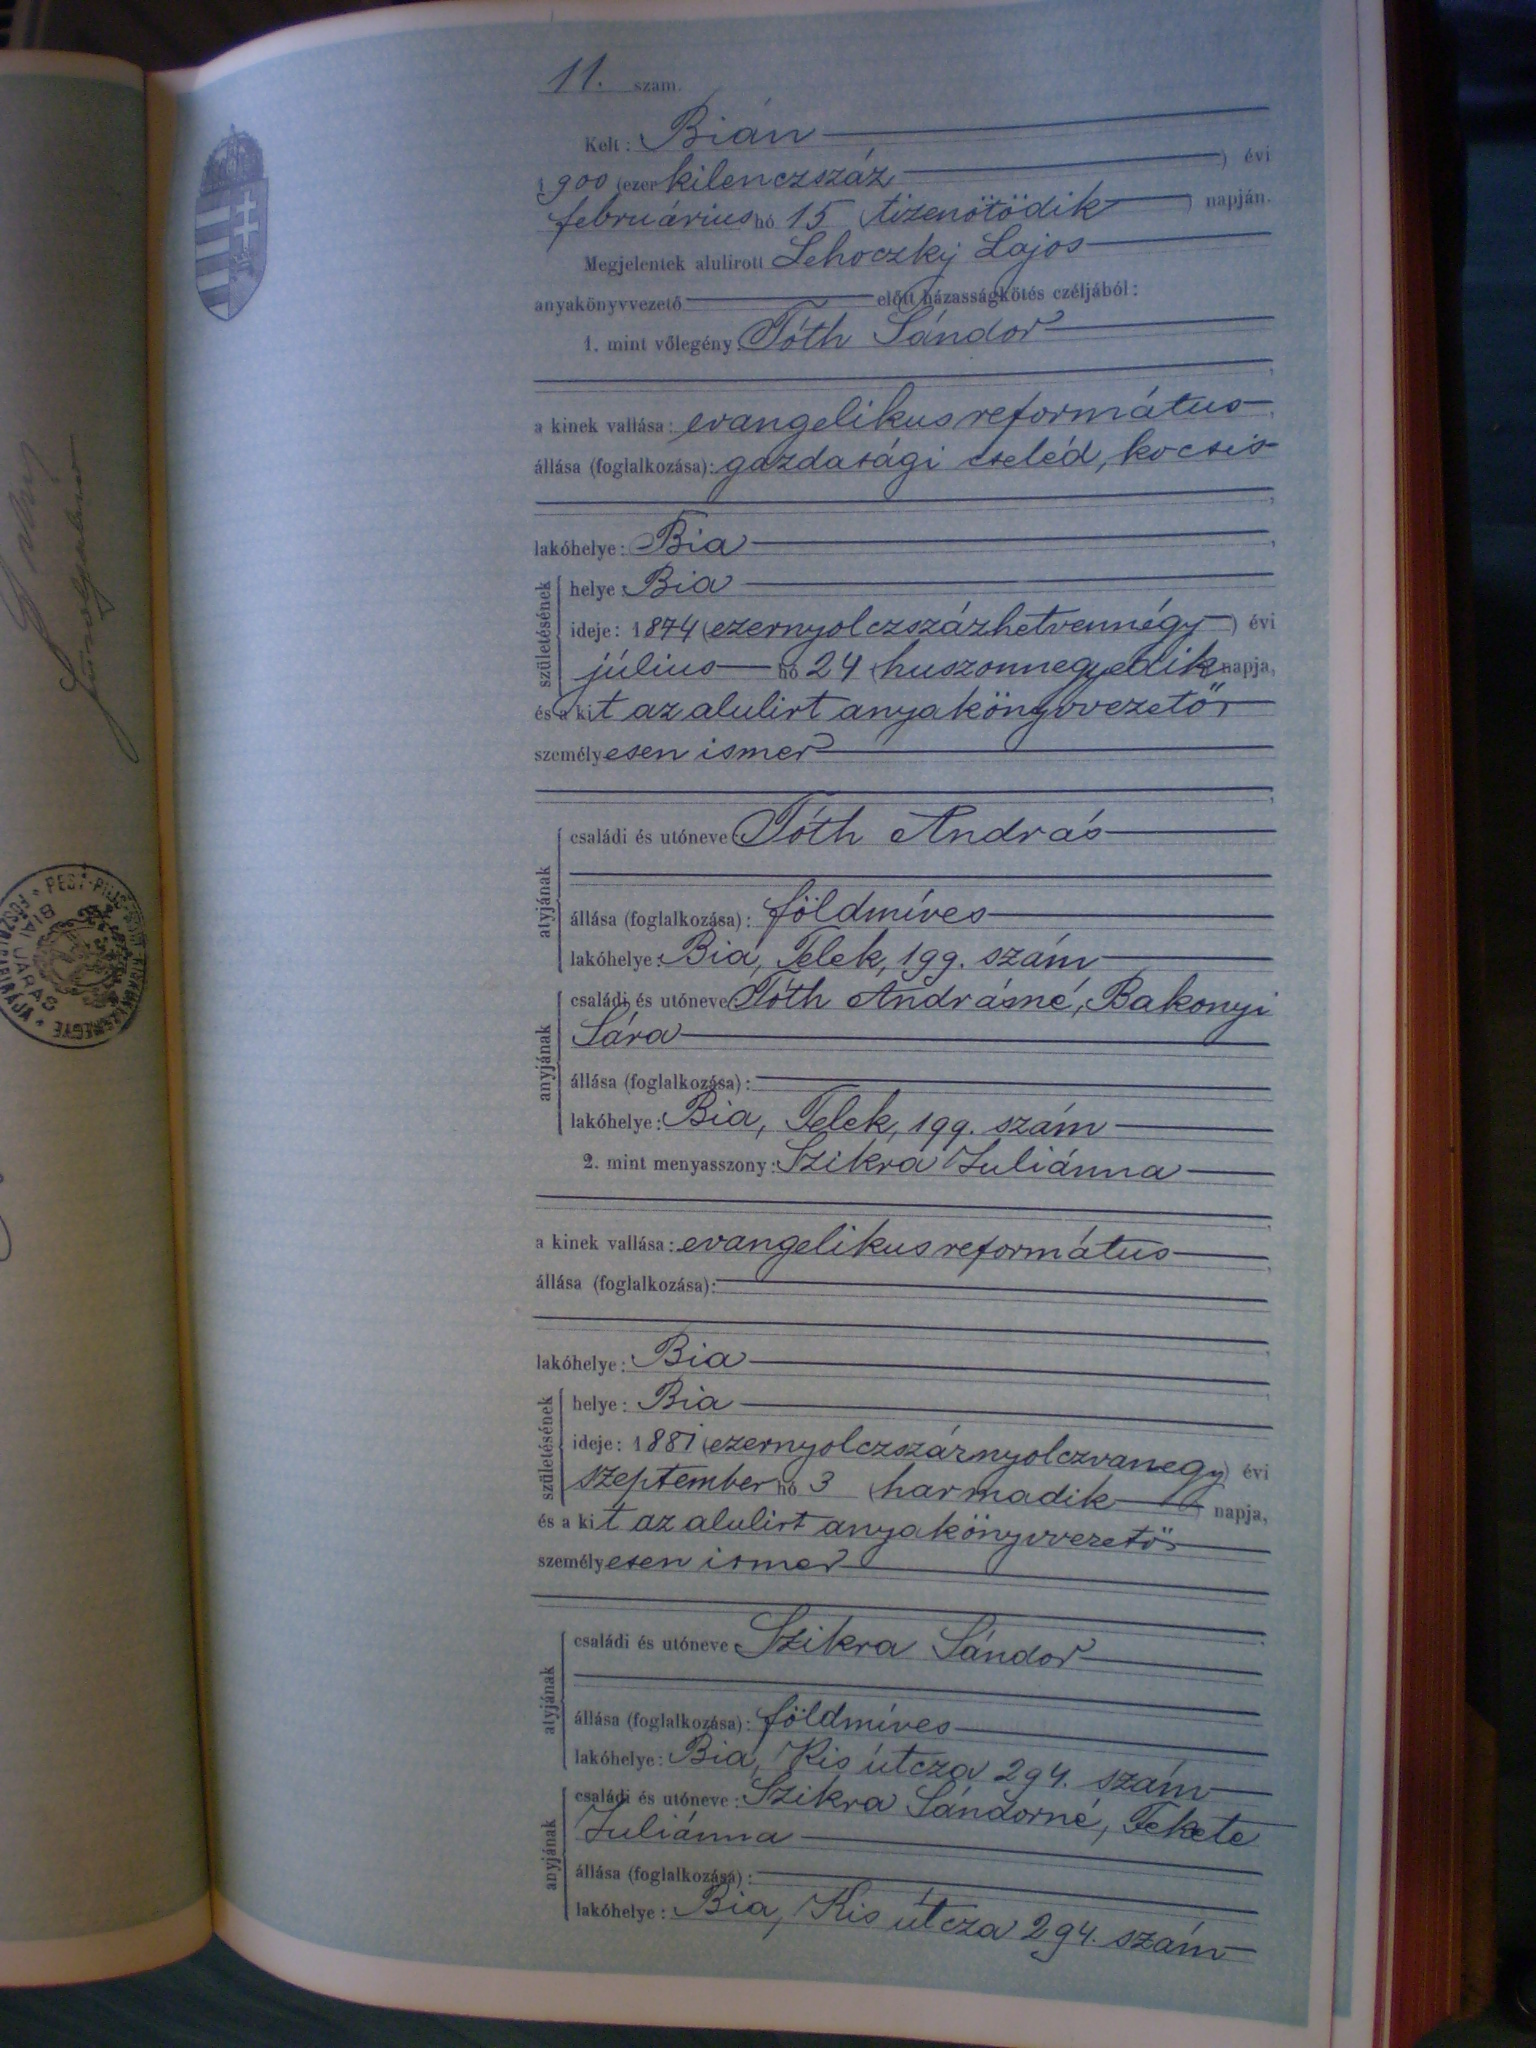 11. szám.
Kelt: Bián
1900 (ezerkilenczszáz) évi
februáŕius hó 15 (tizenötödik) napján.
Megjelentek alulirott Lehoczky Lajos
anyakönyvvezető előtt házasságkötés czéljából:
1. mint vőlegény: Tóth Sándor
a kinek vallása: evangelikus református,
állása (foglalkozása): gazdasági cseléd, kocsis
lakóhelye: Bia,
születésének
helye: Bia
ideje: 1874 (ezernyolczszázhetvennégy) évi
július hó 24 (huszonnegyedik napja,
és a kit az alulirt anyakönyvvezető
személyesen ismer
atyjának
családi és utóneve Tóth András
állása (foglalkozása): földmíves
lakóhelye: Bia, Telek, 199. szám
anyjának
családi és utóneve Tóth Andrásné, Bakonyi
Sára
állása (foglalkozása):
lakóhelye: Bia, Telek, 199. szám
2. mint menyasszony: Szikra Juliánna
a kinek vallása: evangelikus református,
állása (foglalkozása):
lakóhelye: Bia,
születésének
helye: Bia
ideje: 1881 (ezernyolczszáznyolczvanegy) évi
szeptember hó 3 (harmadik) napja,
és a kit az alulirt anyakönyvvezető
személyesen ismer
atyjának
családi és utóneve Szikra Sándor
állása (foglalkozása): földmíves
lakóhelye: Bia, Kis útcza 294. szám
anyjának
családi és utóneve: Szikra Sándorné, Fekete
Juliánna
állása (foglalkozása):
lakóhelye: Bia, Kis útcza 294. szám